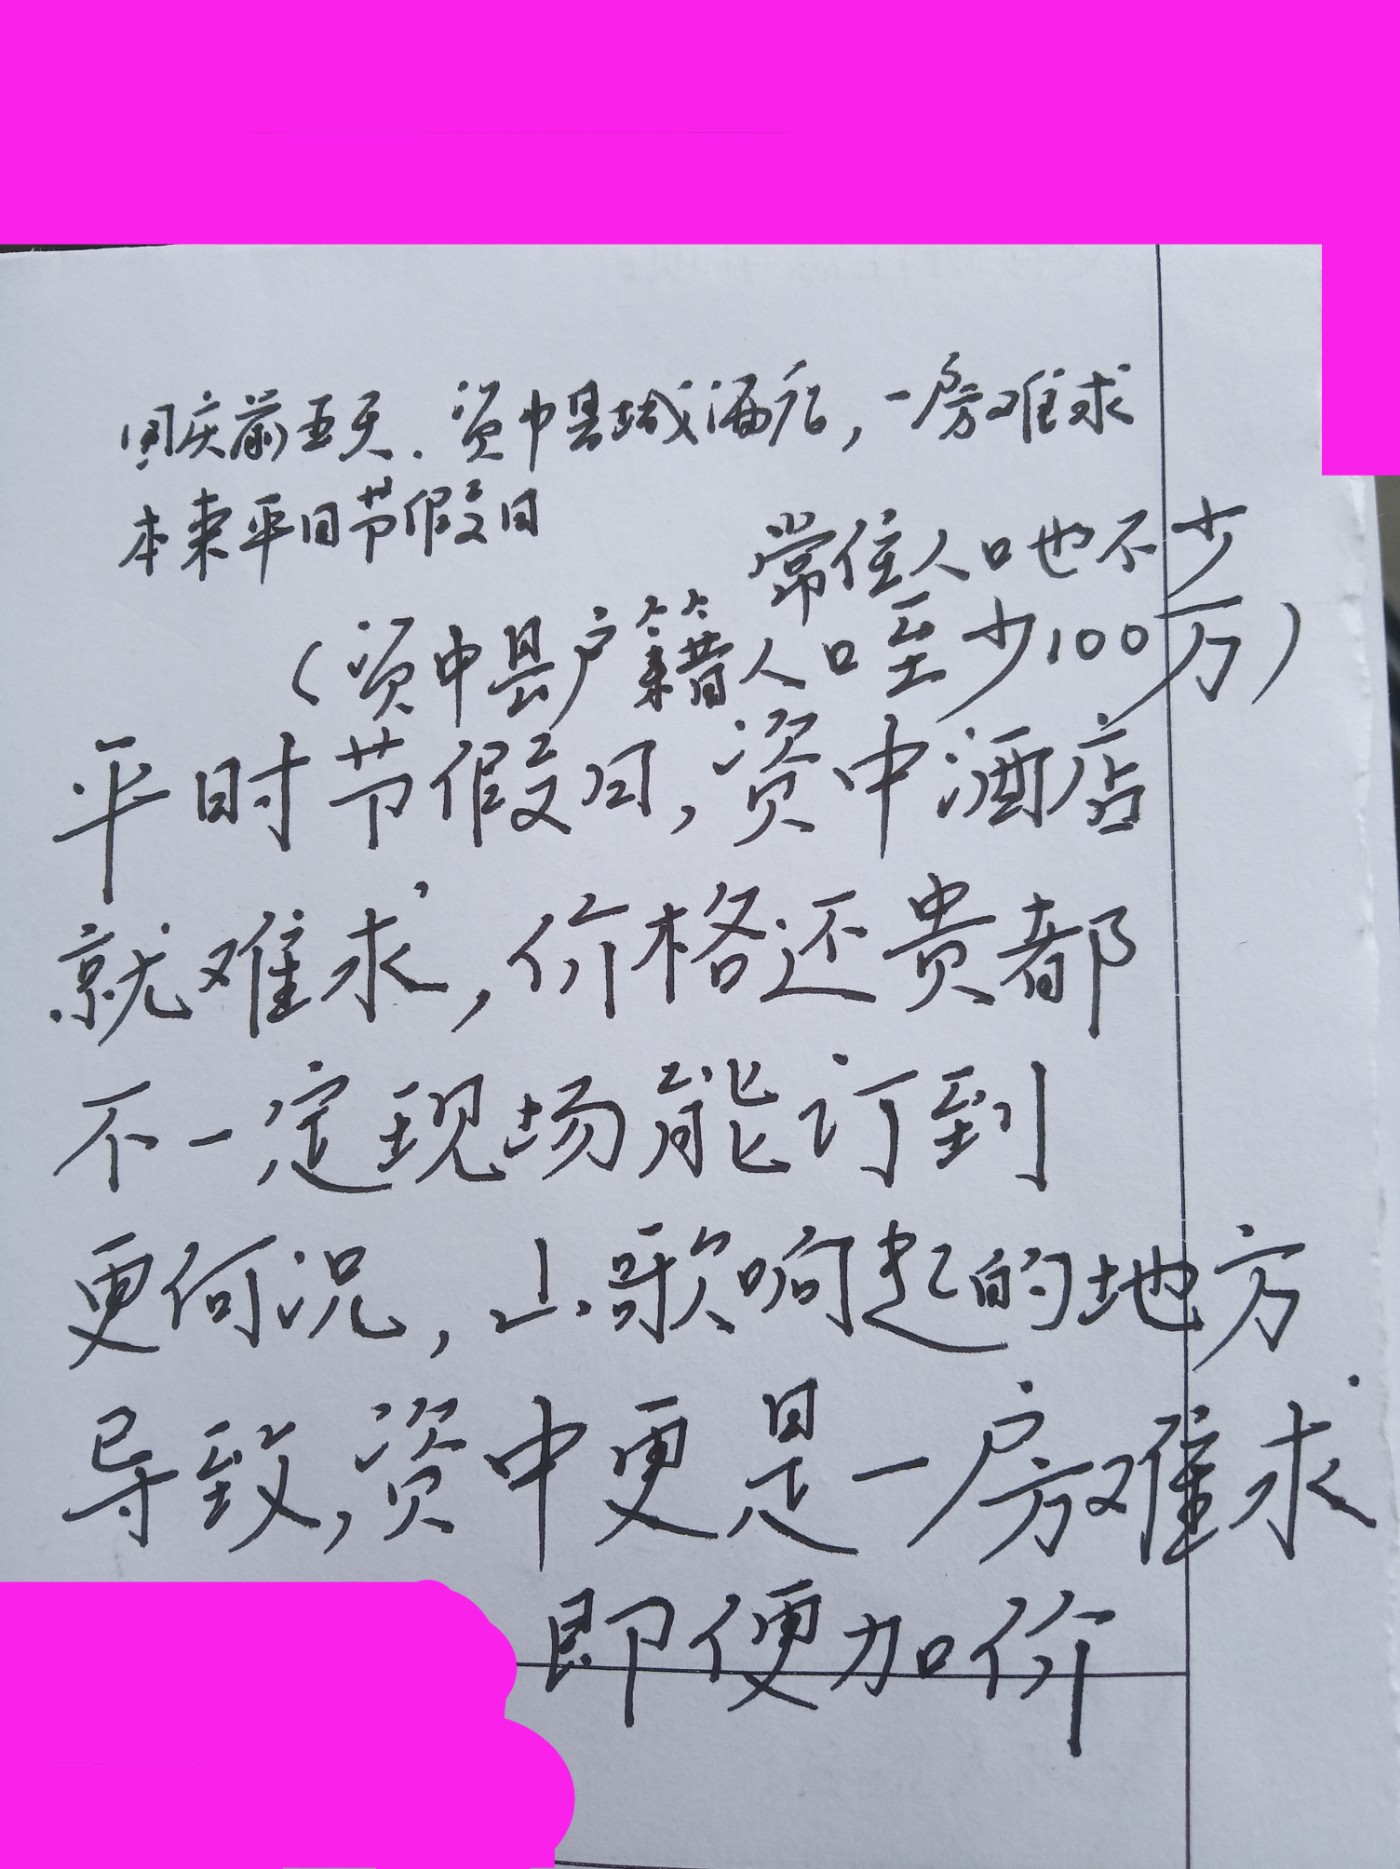 国庆前五天.资中县城酒店,一房难求
本来平日节假日
常住人口也不少
(资中县户籍人口至少100万)
平时节假日,资中酒店
就难求,价格还贵都
不一定现场能订到
更何况,山歌响起的地方
导致,资中更是一房难求
即便加价